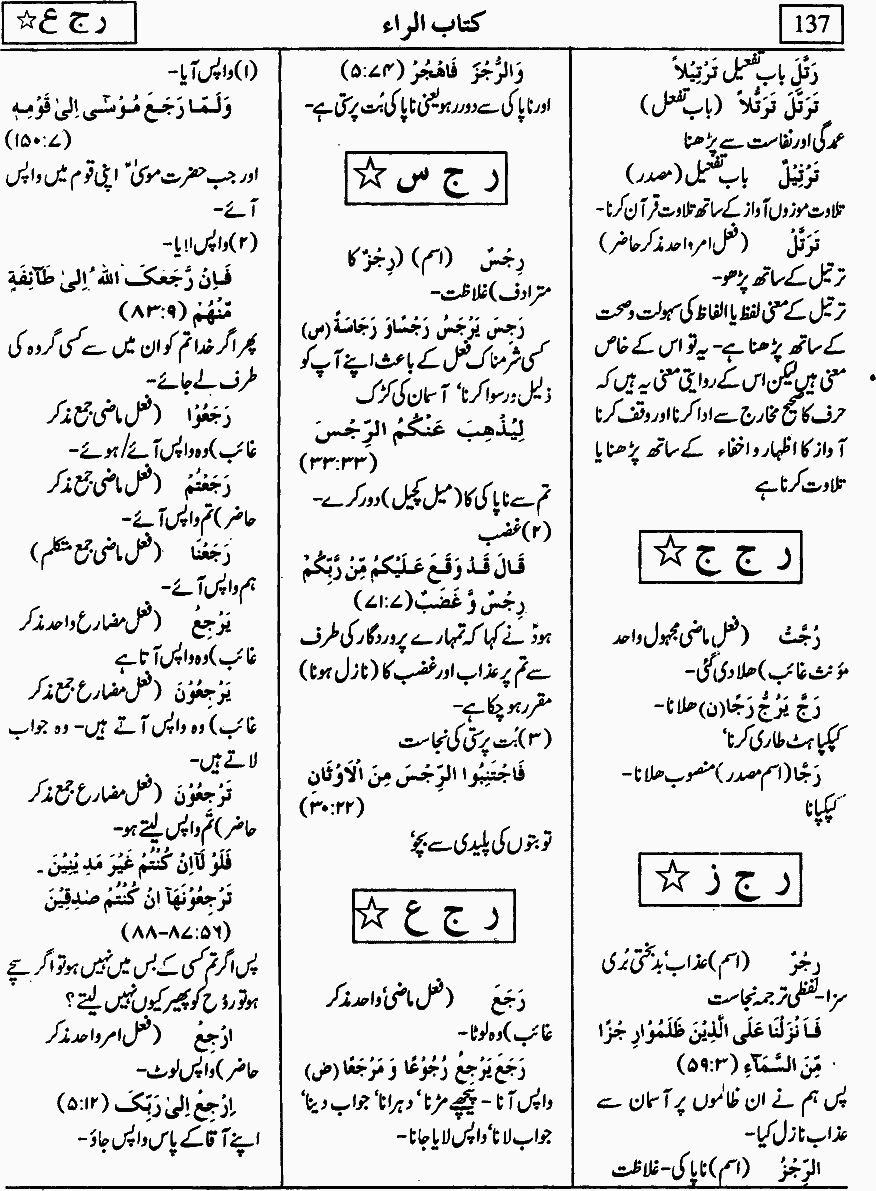 137
کتاب الراء
ر ج ع ☆
رَتَّلَ باب تفعیل تَرْتِیْلاً
تَرَتَّلَ تَرَتُّلاً (باب تفعل)
عمدگی اور نفاست سے پڑھنا
تَرْتِیْلٌ باب تفعیل (مصدر)
تلاوت موزوں آواز کے ساتھ تلاوت قرآن کرنا-
تَرَتَّلْ (فعل امر واحد مذکر حاضر)
ترتیل کے ساتھ پڑھو-
ترتیل کے معنی لفظ یا الفاظ کی سہولت و صحت
کے ساتھ پڑھنا ہے- یہ تو اس کے خاص
معنی ہیں لیکن اس کے روایتی معنی یہ ہیں کہ
حرف کا صحیح مخارج سے ادا کرنا اور وقف کرنا
آواز کا اظہار و اخفاء کے ساتھ پڑھنا یا
تلاوت کرنا ہے
ر ج ج ☆
رُجَّتْ (فعل ماضی مجہول واحد
مؤنث غائب) ھلا دی گئی-
رَجَّ یَرُجُّ رَجًّا (ن) ھلانا-
کپکپاہٹ طاری کرنا'
رَجًّا (اسم مصدر) منصوب ھلانا-
کپکپانا
ر ج ز ☆
رِجْزٌ (اسم) عذاب' بدبختی بُری
سزا- لفظی ترجمہ نجاست
فَاَنْزَلْنَا عَلَی الَّذِیْنَ ظَلَمُوْا رِجْزًا
مِّنَ السَّمَآءِ (۵۹:۳)
پس ہم نے ان ظالموں پر آسمان سے
عذاب نازل کیا-
الرِّجْزُ (اسم) ناپاکی- غلاظت
وَالرُّجْزَ فَاهْجُرْ (۵:۷۴)
اور ناپاکی سے دور رہو یعنی ناپاکی بُت پرستی ہے-
ر ج س ☆
رِجْسٌ (اسم) (رِجْزٌ کا
مترادف) غلاظت-
رَجِسَ یَرْجَسُ رَجْسًا وَ رَجَاسَةً (س)
کسی شرمناک فعل کے باعث اپنے آپ کو
ذلیل و رسوا کرنا' آسمان کی کڑک
لِیُذْهِبَ عَنْكُمُ الرِّجْسَ
(۳۳:۳۳)
تم سے ناپاکی کا (میل کچیل) دور کرے-
(۲) غضب
قَالَ قَدْ وَقَعَ عَلَیْكُمْ مِّنْ رَّبِّكُمْ
رِجْسٌ وَّ غَضَبٌ (۷۱:۷)
ہودؑ نے کہا کہ تمہارے پروردگار کی طرف
سے تم پر عذاب اور غضب کا (نازل ہونا)
مقرر ہو چکا ہے-
(۳) بُت پرستی کی نجاست
فَاجْتَنِبُوا الرِّجْسَ مِنَ الْاَوْثَانِ
(۳۰:۲۲)
تو بتوں کی پلیدی سے بچو'
ر ج ع ☆
رَجَعَ (فعل ماضی' واحد مذکر
غائب) وہ لوٹا-
رَجَعَ یَرْجِعُ رُجُوْعًا وَ مَرْجَعًا (ض)
واپس آنا- پیچھے مڑنا' دہرانا' جواب دینا'
جواب لانا' واپس لایا جانا-
(۱) واپس آیا-
وَلَمَّا رَجَعَ مُوْسٰی اِلٰی قَوْمِهٖ
(۱۵۰:۷)
اور جب حضرت موسیٰؑ اپنی قوم میں واپس
آئے-
(۲) واپس لایا-
فَاِنْ رَّجَعَكَ اللهُ اِلٰی طَآئِفَةٍ
مِّنْهُمْ (۸۳:۹)
پھر اگر خدا تم کو ان میں سے کسی گروہ کی
طرف لے جائے-
رَجَعُوْا (فعل ماضی جمع مذکر
غائب) وہ واپس آئے/ ہوئے-
رَجَعْتُمْ (فعل ماضی جمع مذکر
حاضر) تم واپس آئے-
رَجَعْنَا (فعل ماضی جمع متکلم)
ہم واپس آئے-
یَرْجِعُ (فعل مضارع واحد مذکر
غائب) وہ واپس آتا ہے
یَرْجِعُوْنَ (فعل مضارع جمع مذکر
غائب) وہ واپس آتے ہیں- وہ جواب
لاتے ہیں-
تَرْجِعُوْنَ (فعل مضارع جمع مذکر
حاضر) تم واپس لیتے ہو-
فَلَوْ لَآ اِنْ كُنْتُمْ غَیْرَ مَدِیْنِیْنَ۔
تَرْجِعُوْنَهَآ اِنْ كُنْتُمْ صٰدِقِیْنَ
(۸۸-۸۷:۵۶)
پس اگر تم کسی کے بس میں نہیں ہو تو اگر سچے
ہو تو روح کو پھیر کیوں نہیں لیتے؟
اِرْجِعْ (فعل امر واحد مذکر
حاضر) واپس لوٹ-
اِرْجِعْ اِلٰی رَبِّكَ (۵:۱۲)
اپنے آقا کے پاس واپس جاؤ-